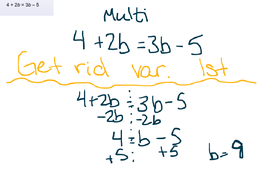 4 + 2b = 3b − 5
Multi
4 + 2b = 3b − 5
Get rid var. 1st
4 + 2b = 3b − 5
−2b −2b
4 = b − 5
+5 +5
b = 9